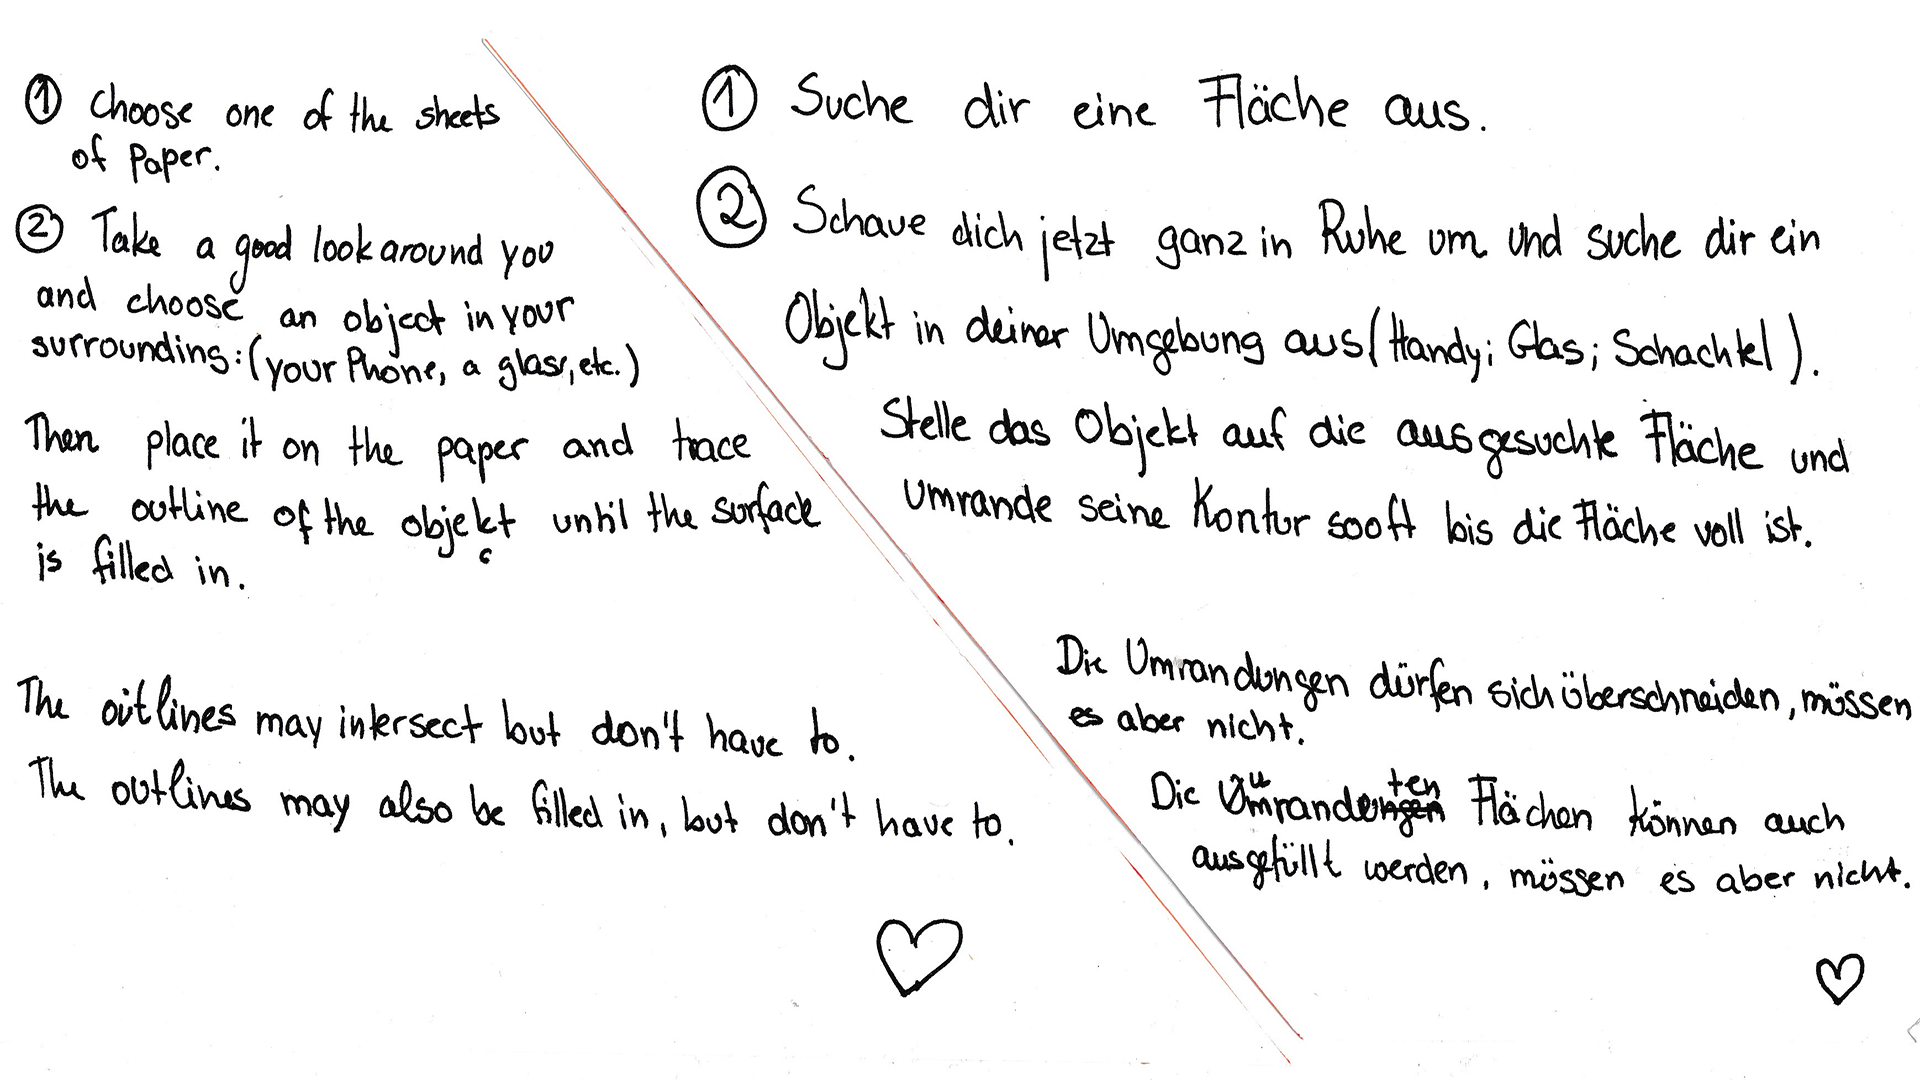 ① Choose one of the sheets
of Paper.
② Take a good look around you
and choose an object in your
surrounding: (your Phone, a glass, etc.)
Then place it on the paper and trace
the outline of the objekt until the surface
c
is filled in.
The oitlines may intersect but don't have to.
The outlines may also be filled in, but don't have to.
① Suche dir eine Fläche aus.
② Schaue dich jetzt ganz in Ruhe um und suche dir ein
Objekt in deiner Umgebung aus (Handy; Glas; Schachtel).
Stelle das Objekt auf die ausgesuchte Fläche und
umrande seine Kontur sooft bis die Fläche voll ist.
Die Umrandungen dürfen sich überschneiden, müssen
es aber nicht.
Die umrandeten Flächen können auch
ausgefüllt werden, müssen es aber nicht.